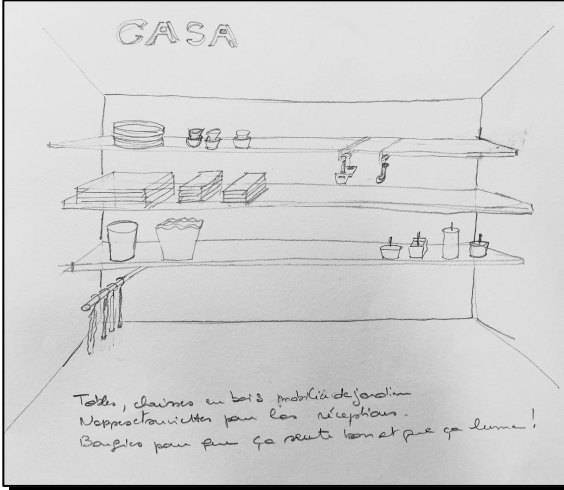 CASA
Tables, chaises en bois mobilié de jardin
Nappes et serviettes pour les réceptions.
Bougies pour que ça sente bon et que ça lume !